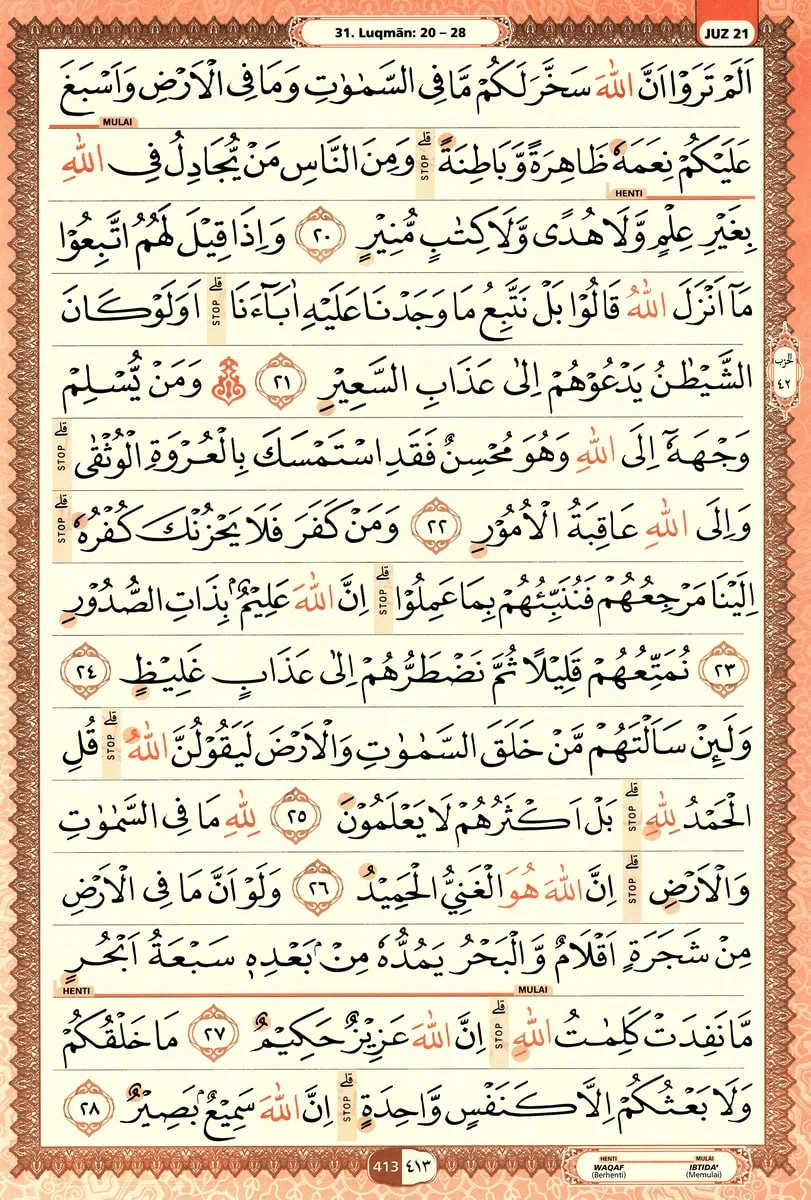 31. Luqmān: 20 – 28
JUZ 21
اَلَمْ تَرَوْا اَنَّ اللّٰهَ سَخَّرَ لَكُمْ مَّا فِى السَّمٰوٰتِ وَمَا فِى الْاَرْضِ وَاَسْبَغَ
MULAI
عَلَيْكُمْ نِعَمَهٗ ظَاهِرَةً وَّبَاطِنَةً ۗ STOP وَمِنَ النَّاسِ مَنْ يُّجَادِلُ فِى اللّٰهِ
HENTI
بِغَيْرِ عِلْمٍ وَّلَا هُدًى وَّلَا كِتٰبٍ مُّنِيْرٍ ٢٠ وَاِذَا قِيْلَ لَهُمُ اتَّبِعُوْا
مَآ اَنْزَلَ اللّٰهُ قَالُوْا بَلْ نَتَّبِعُ مَا وَجَدْنَا عَلَيْهِ اٰبَاۤءَنَا ۗ STOP اَوَلَوْ كَانَ
الحزب
٤٢
الشَّيْطٰنُ يَدْعُوْهُمْ اِلٰى عَذَابِ السَّعِيْرِ ٢١ وَمَنْ يُّسْلِمْ
وَجْهَهٗٓ اِلَى اللّٰهِ وَهُوَ مُحْسِنٌ فَقَدِ اسْتَمْسَكَ بِالْعُرْوَةِ الْوُثْقٰى ۗ STOP
وَاِلَى اللّٰهِ عَاقِبَةُ الْاُمُوْرِ ٢٢ وَمَنْ كَفَرَ فَلَا يَحْزُنْكَ كُفْرُهٗ ۗ STOP
اِلَيْنَا مَرْجِعُهُمْ فَنُنَبِّئُهُمْ بِمَا عَمِلُوْا ۗ STOP اِنَّ اللّٰهَ عَلِيْمٌۢ بِذَاتِ الصُّدُوْرِ
٢٣ نُمَتِّعُهُمْ قَلِيْلًا ثُمَّ نَضْطَرُّهُمْ اِلٰى عَذَابٍ غَلِيْظٍ ٢٤
وَلَىِٕنْ سَاَلْتَهُمْ مَّنْ خَلَقَ السَّمٰوٰتِ وَالْاَرْضَ لَيَقُوْلُنَّ اللّٰهُ ۗ STOP قُلِ
الْحَمْدُ لِلّٰهِ ۗ STOP بَلْ اَكْثَرُهُمْ لَا يَعْلَمُوْنَ ٢٥ لِلّٰهِ مَا فِى السَّمٰوٰتِ
وَالْاَرْضِ ۗ STOP اِنَّ اللّٰهَ هُوَ الْغَنِيُّ الْحَمِيْدُ ٢٦ وَلَوْ اَنَّ مَا فِى الْاَرْضِ
مِنْ شَجَرَةٍ اَقْلَامٌ وَّالْبَحْرُ يَمُدُّهٗ مِنْۢ بَعْدِهٖ سَبْعَةُ اَبْحُرٍ
MULAI HENTI
مَّا نَفِدَتْ كَلِمٰتُ اللّٰهِ ۗ STOP اِنَّ اللّٰهَ عَزِيْزٌ حَكِيْمٌ ٢٧ مَا خَلْقُكُمْ
وَلَا بَعْثُكُمْ اِلَّا كَنَفْسٍ وَّاحِدَةٍ ۗ STOP اِنَّ اللّٰهَ سَمِيْعٌۢ بَصِيْرٌ ٢٨
413 ٤١٣
HENTI MULAI
WAQAF IBTIDA'
(Berhenti) (Memulai)